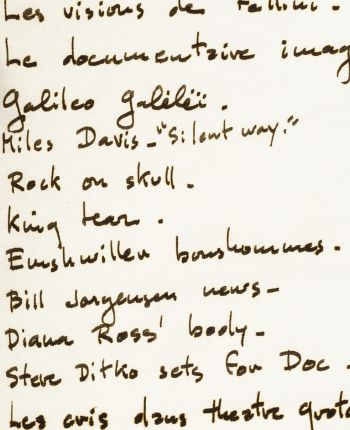 Les visions de Fellini.
Le documentaire imag
Galileo Galèlëi.
Miles Davis_"Silent way."
Rock on skull.
King lear.
Emshwiller bonshommes.
Bill Jorgensen news_
Diana Ross' body_
Steve Ditko sets for Doc.
Les cris dans theatre